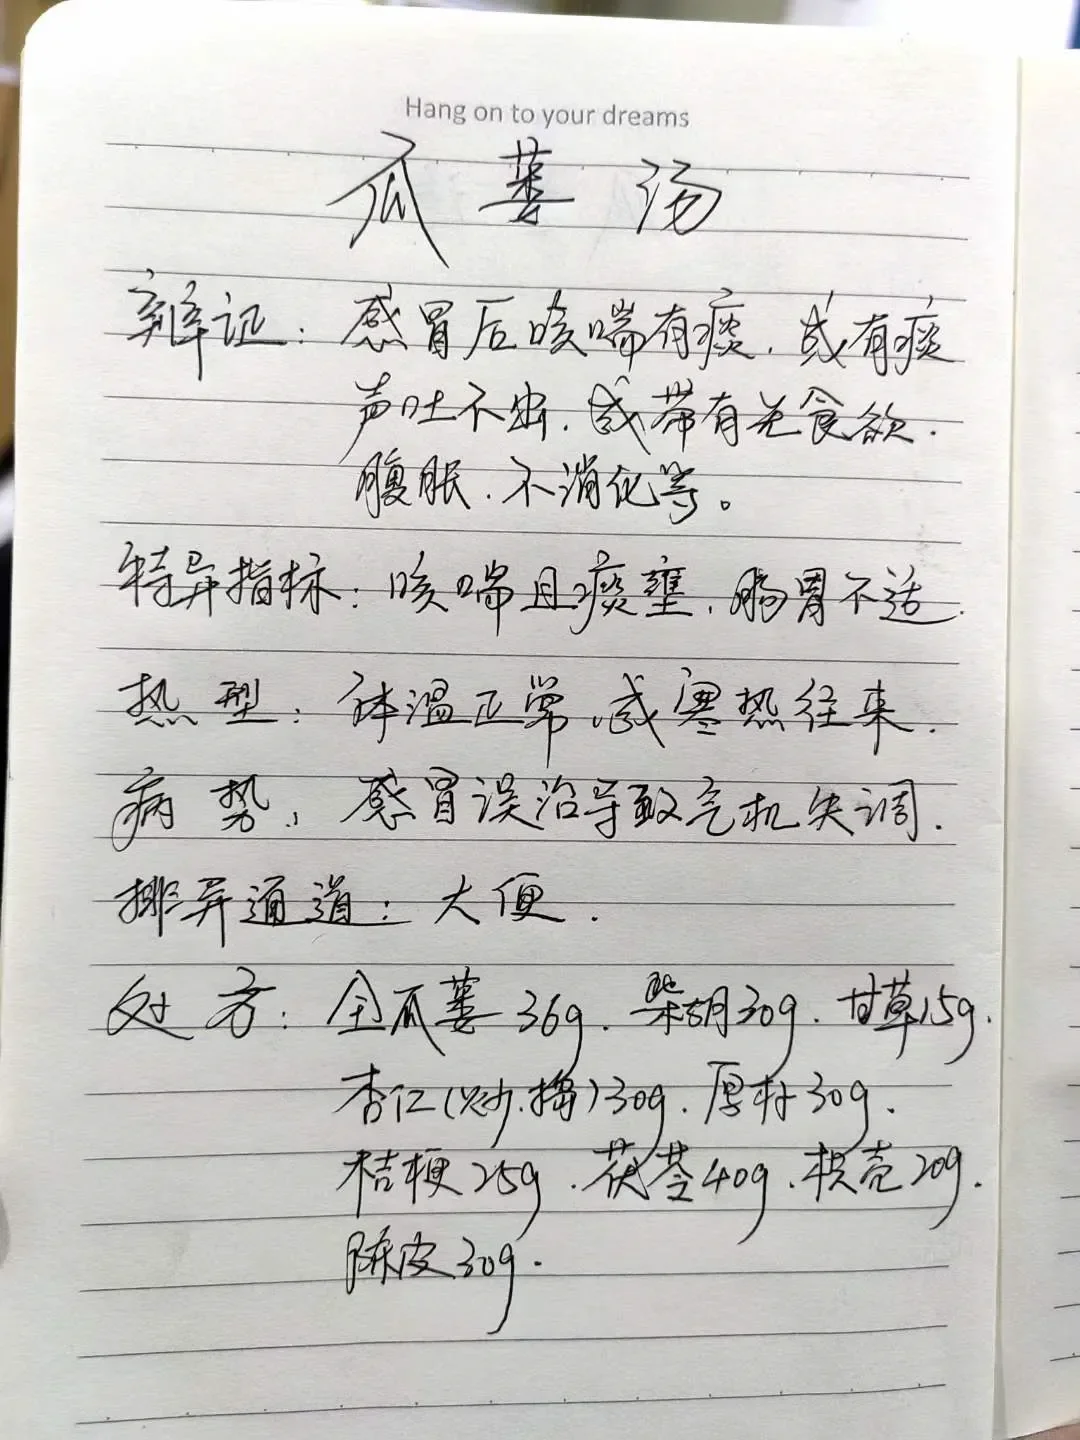 Hang on to your dreams
瓜蒌汤
辨证：感冒后咳喘有痰，或有痰
声吐不出，或带有无食欲，
腹胀，不消化等。
特异指标：咳喘且痰壅，肠胃不适.
热型：体温正常，或寒热往来.
病势：感冒误治导致气机失调.
排异通道：大便.
处方：全瓜蒌36g.柴胡30g.甘草15g.
杏仁(炒.捣)30g.厚朴30g.
桔梗25g.茯苓40g.枳壳20g.
陈皮30g.